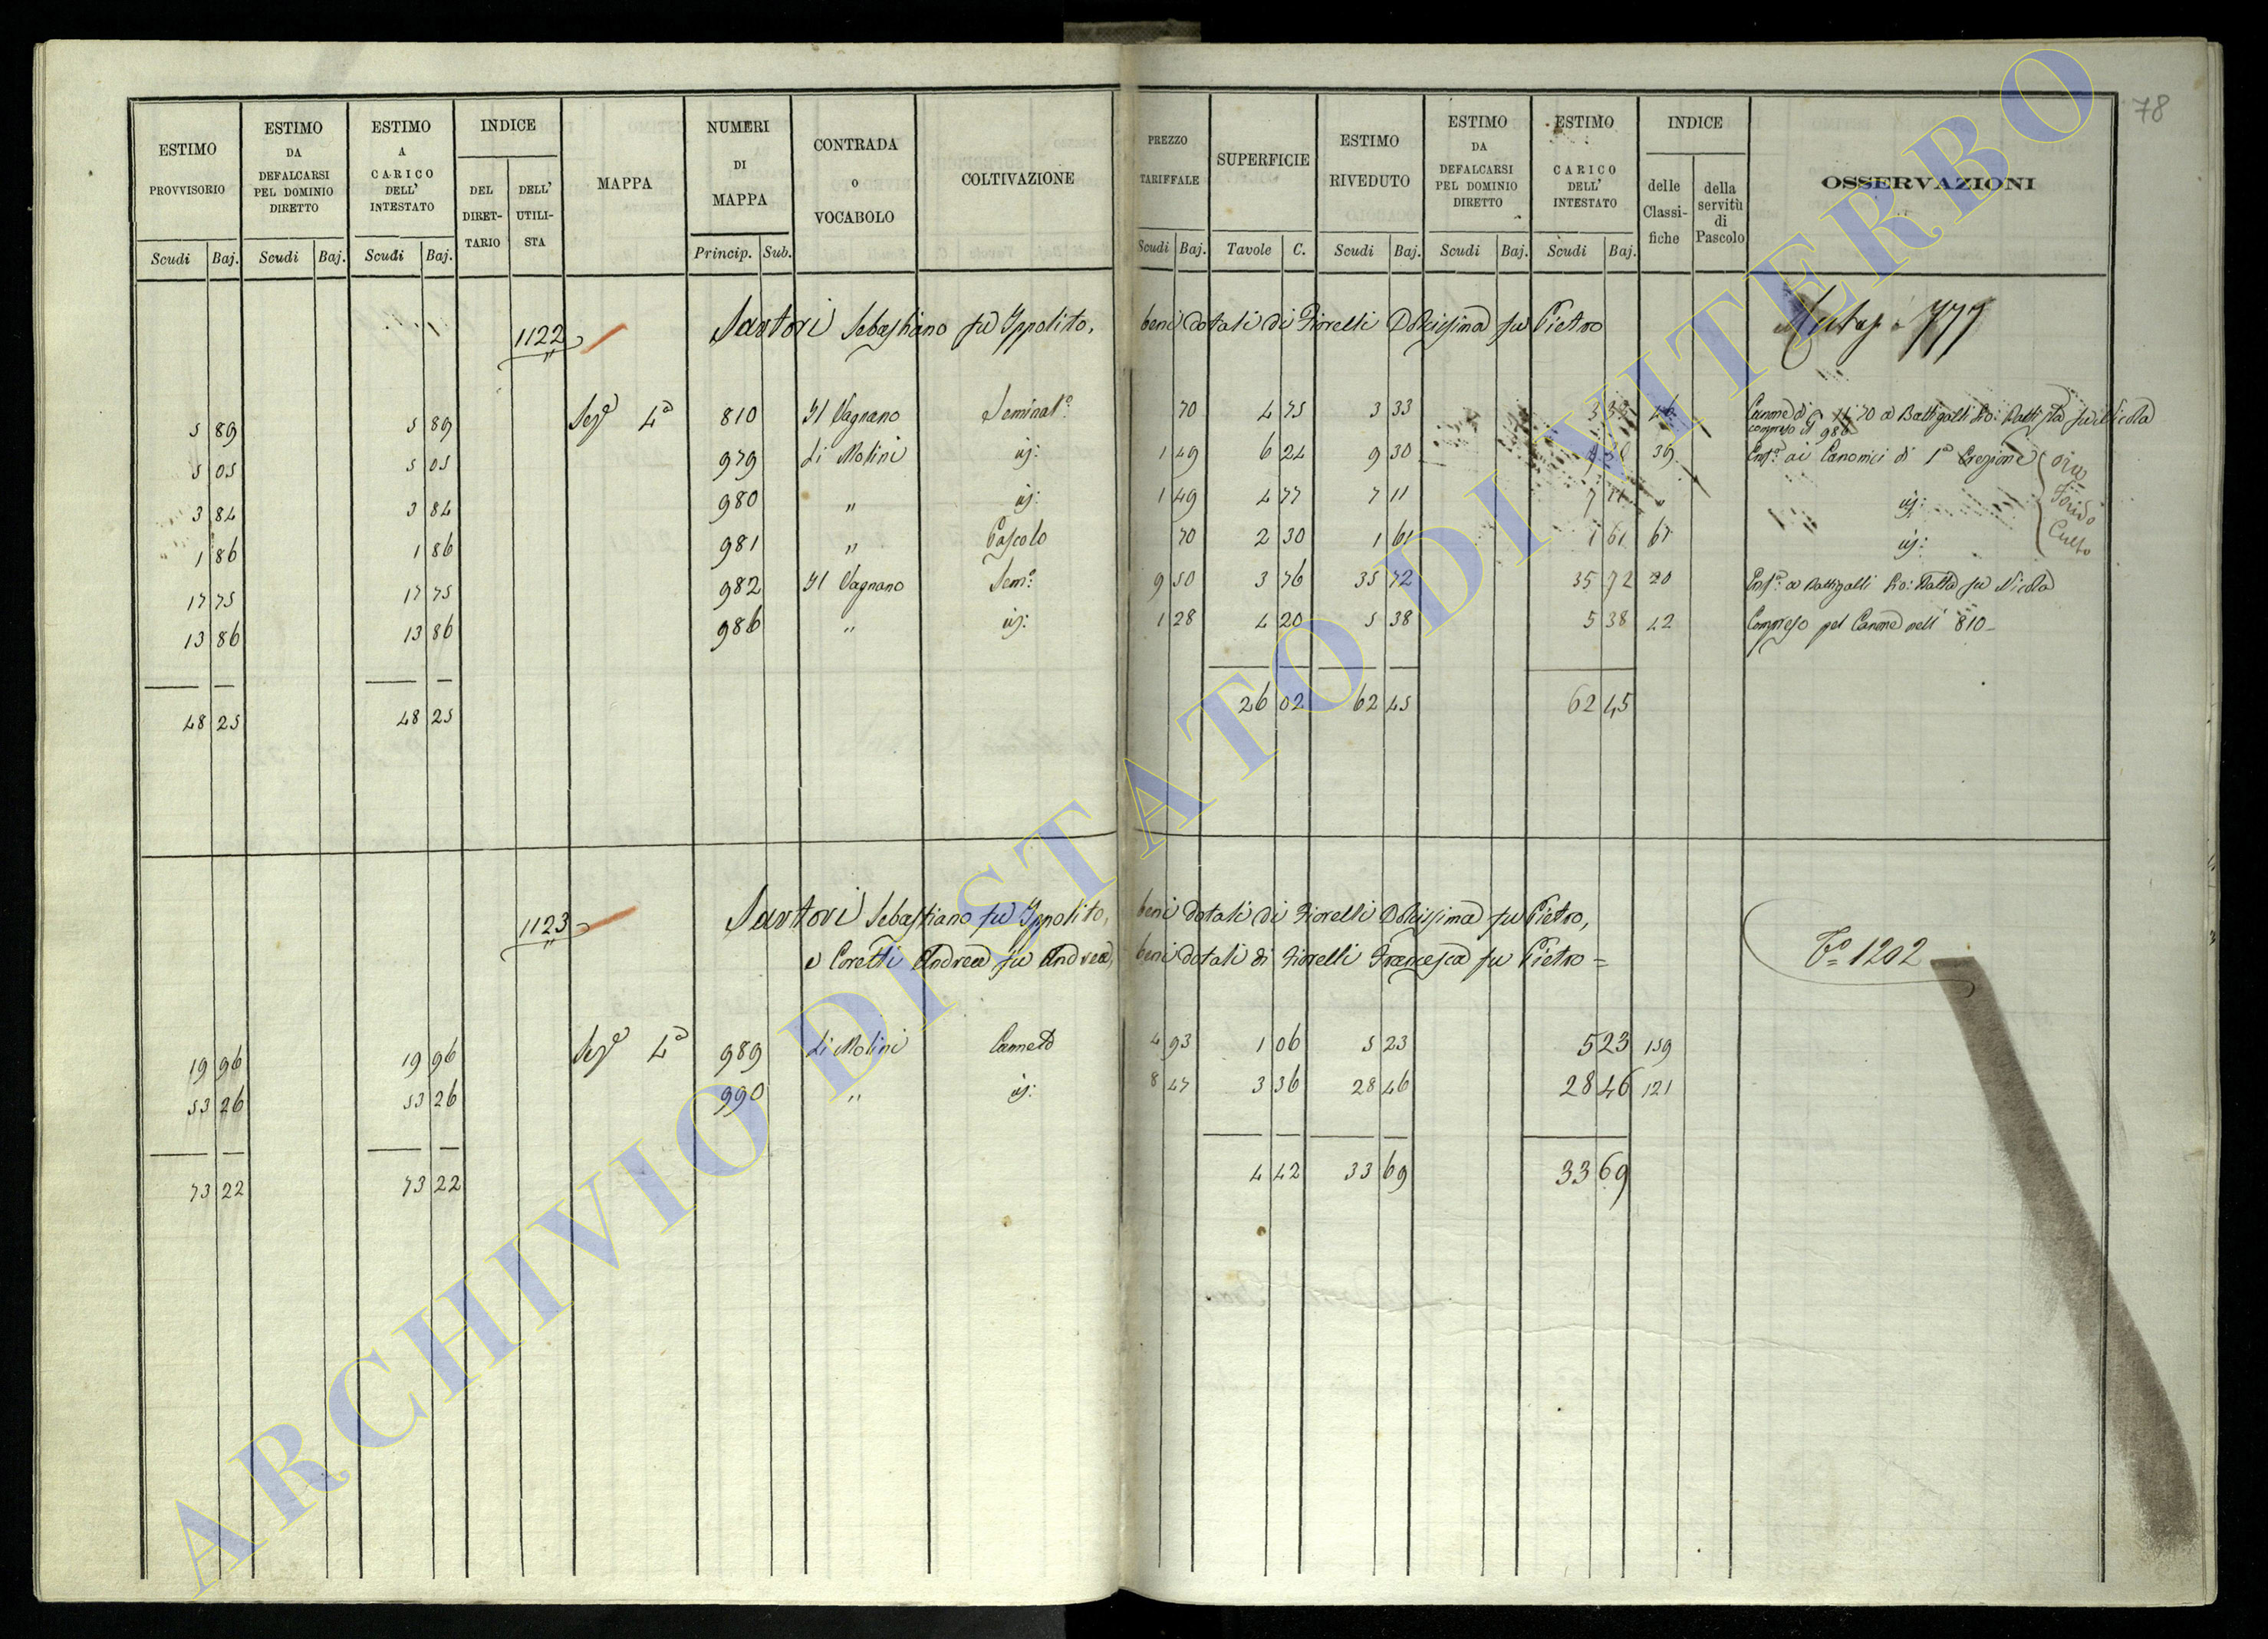 78
ESTIMO PROVVISORIO
ESTIMO DA DEFALCARSI PEL DOMINIO DIRETTO
ESTIMO A CARICO DELL' INTESTATO
INDICE
DEL DIRET-TARIO
DELL' UTILI-STA
MAPPA
NUMERI DI MAPPA
CONTRADA o VOCABOLO
COLTIVAZIONE
PREZZO TARIFFALE
SUPERFICIE
ESTIMO RIVEDUTO
ESTIMO DA DEFALCARSI PEL DOMINIO DIRETTO
ESTIMO CARICO DELL' INTESTATO
INDICE
delle Classi-fiche
della servitù di Pascolo
OSSERVAZIONI
Scudi Baj. Scudi Baj. Scudi Baj. Princip. Sub. Scudi Baj. Tavole C. Scudi Baj. Scudi Baj. Scudi Baj.
1122 Sartori Sebastiano fu Ippolito, beni dotali di Fiorelli Dolcissima fu Pietro 777
5 89 5 89 Sez.e 4a 810 Il Vagnano Seminat.o 70 4 75 3 33 3 33 Canone di 70 a Battigalli Fu Nicola
compreso il 986
5 05 5 05 979 Li Molini id: 1 49 6 24 9 30 39 Enf.a ai Canonici di 1a Erezione ora
3 84 3 84 980 " id: 1 49 4 77 7 11 7 11 id: Fondo
1 86 1 86 981 " Pascolo 70 2 30 1 61 1 61 67 id: Culto
17 75 17 75 982 Il Vagnano Sem.o 9 50 3 76 35 72 35 72 20 Enf.a a Battigalli Gio: Batta fu Nicola
13 86 13 86 986 " id: 1 28 4 20 5 38 5 38 42 Compreso pel Canone nell' 810
48 25 48 25 26 02 62 45 62 45
1123 Sartori Sebastiano fu Ippolito, beni dotali di Fiorelli Dolcissima fu Pietro,
e Coretti Andrea fu Andrea, beni dotali di Fiorelli Francesca fu Pietro = 1202
19 96 19 96 Sez.e 4a 989 Li Molini Canneto 4 93 1 06 5 23 5 23 159
53 26 53 26 990 " id: 8 47 3 36 28 46 28 46 121
73 22 73 22 4 42 33 69 33 69
ARCHIVIO DI STATO DI VITERBO